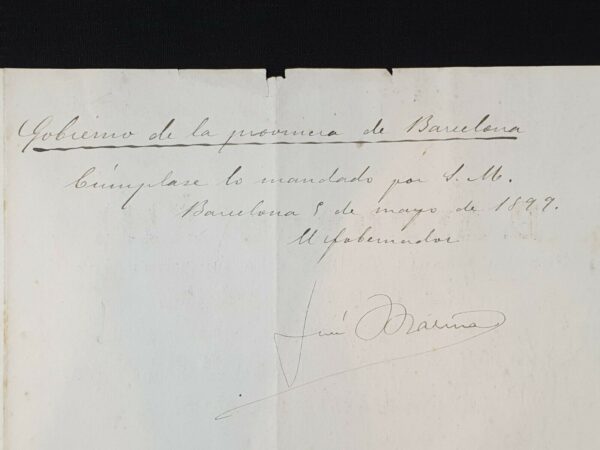 Gobierno de la provincia de Barcelona
Cúmplase lo mandado por S. M.
Barcelona 5 de mayo de 1899.
El Gobernador
José